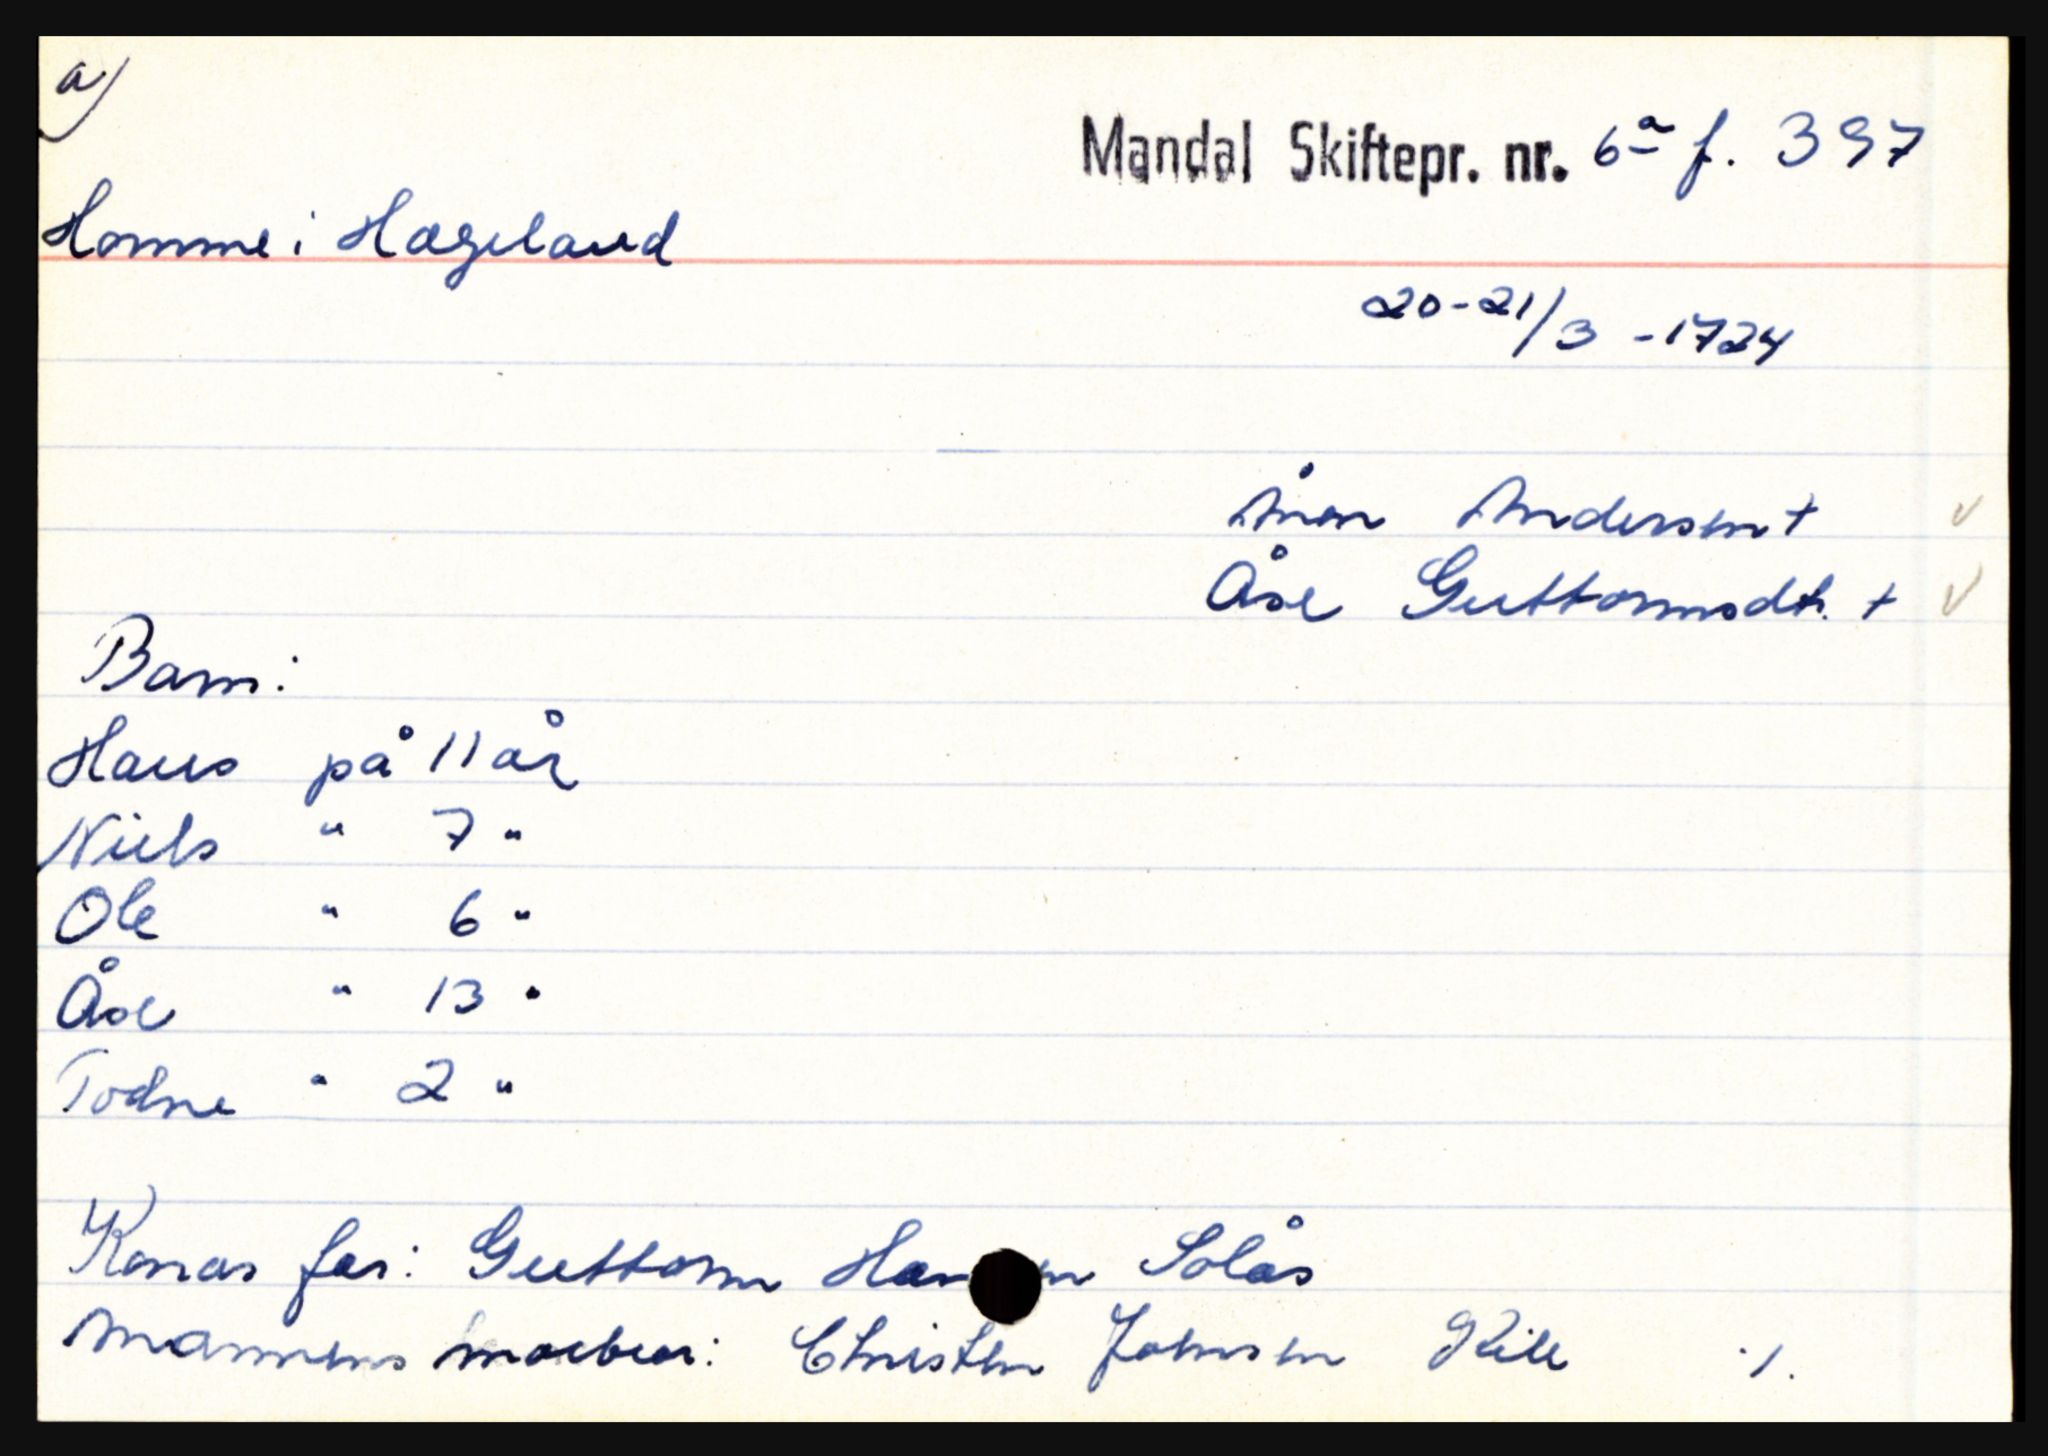 a)
Mandal Skiftepr. nr. 6a f. 397
Homme i Hægeland
20-21/3 -1724
Ånon Andersen +
Åse Guttormsdtr. +
Barn:
Hans på 11 år
Niels " 7 "
Ole " 6 "
Åse " 13 "
Todne " 2 "
Konas far: Guttorm Hansen Solås
Mannens morbror: Christen Johnsen Kile ./.